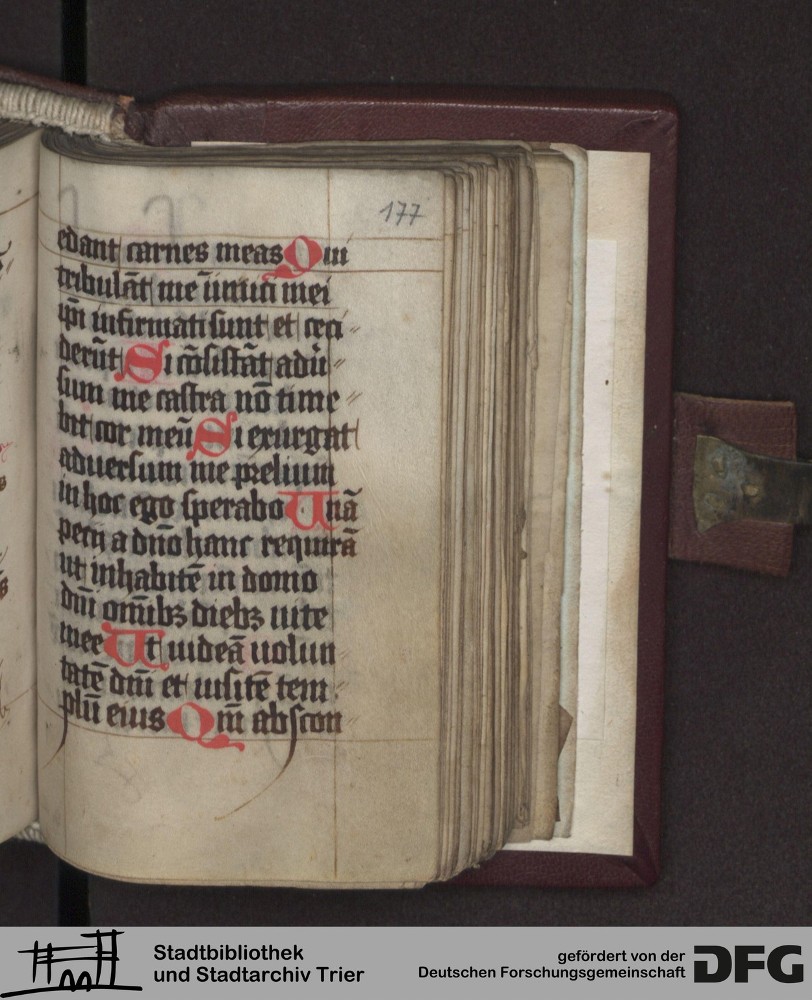 177
edant carnes meas Qui
tribulāt me inimici mei
ip̄i infirmati sunt et ceci
derūt Si cōsistāt adu̇
sum me castra nō time
bit cor meū Si exurgat
aduersum me prelium
in hoc ego sperabo Unā
pecij a dn̄o hanc requirā
ut inhabitē in domo
dn̄i om̄ibꝫ diebꝫ uite
mee Ut uideā uolun
tatē dn̄i et uisitē tem
plū eius Qm̄ abscon
Stadtbibliothek
und Stadtarchiv Trier
gefördert von der
Deutschen Forschungsgemeinschaft
DFG